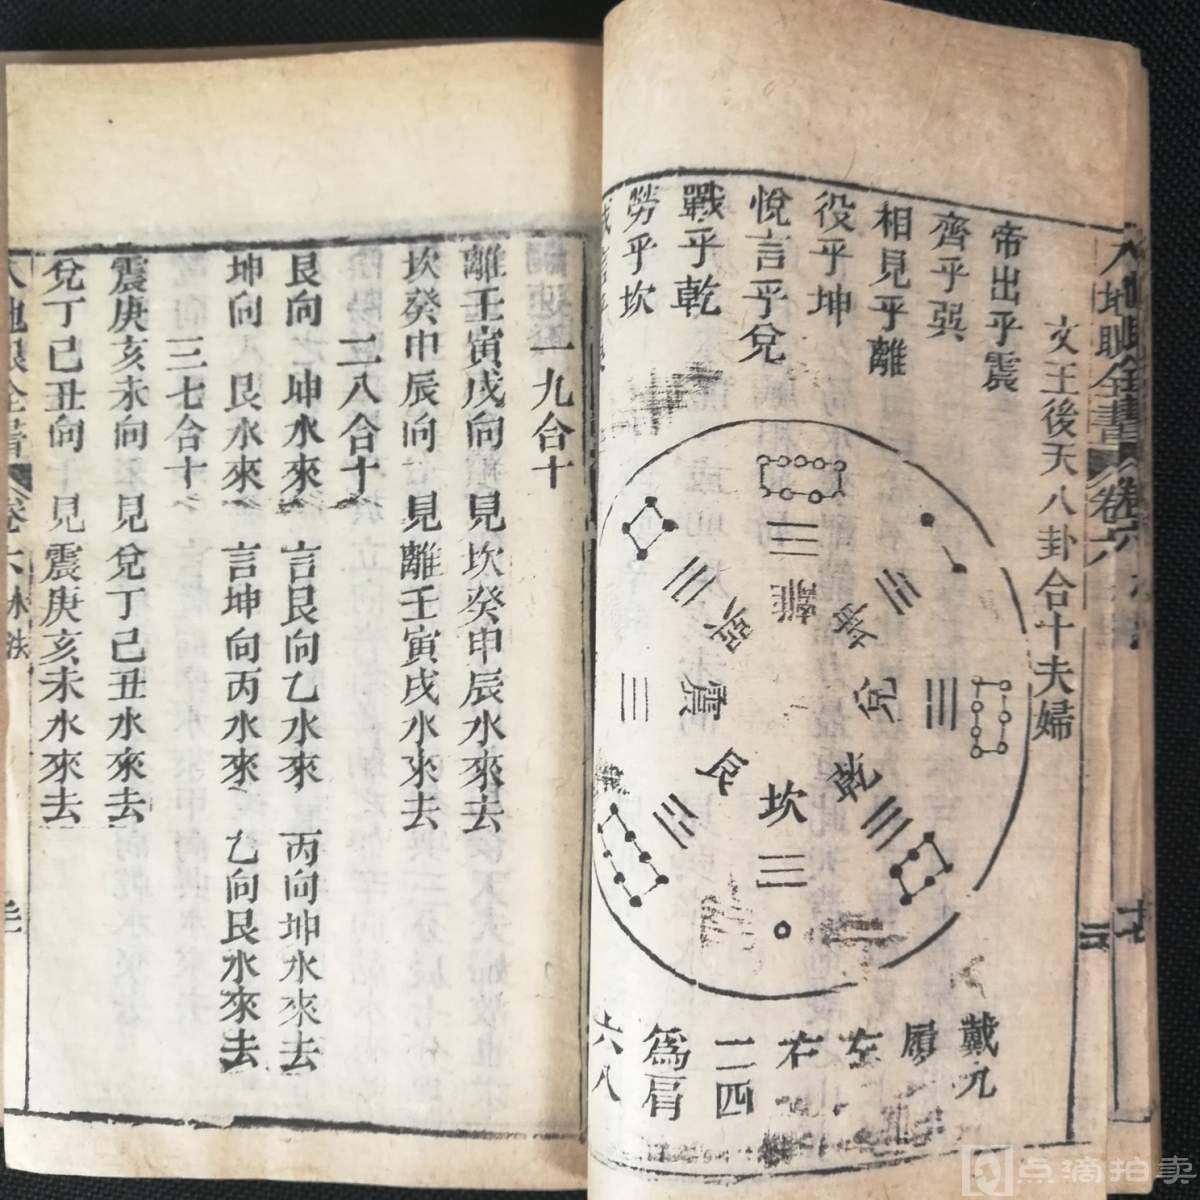 文王後天八卦合十夫婦
帝出乎震
齊乎巽
相見乎離
役乎坤
悅言乎兌
戰乎乾
勞乎坎
離
坤
兌
乾
坎
艮
震
巽
戴九
履
左
右
二四
為肩
六八
地眼全書 卷六
一九合十
離壬寅戌向 見坎癸申辰水來去
坎癸申辰向 見離壬寅戌水來去
二八合十
艮向 坤水來 言艮向乙水來 丙向坤水來去
坤向 艮水來 言坤向丙水來 乙向艮水來去
三七合十
震庚亥未向 見兌丁己丑水來去
兌丁己丑向 見震庚亥未水來去
地眼全書 卷六 水法
点滴拍卖